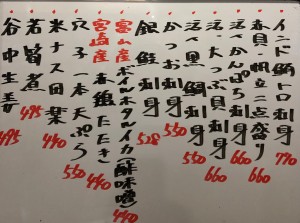 インド鮪トロ刺身 770
赤貝・帆立二点盛り 660
活〆かんぱち刺身 660
活〆大トロ刺身 660
活〆黒鯛刺身 550
かつお刺身 550
銀鮭刺身 528
富山産ボイルホタルイカ(酢味噌) 440
宮崎産春鰹たたき 440
穴子一本天ぷら 550
米ナス田楽 440
若筍煮 495
谷中生姜 495